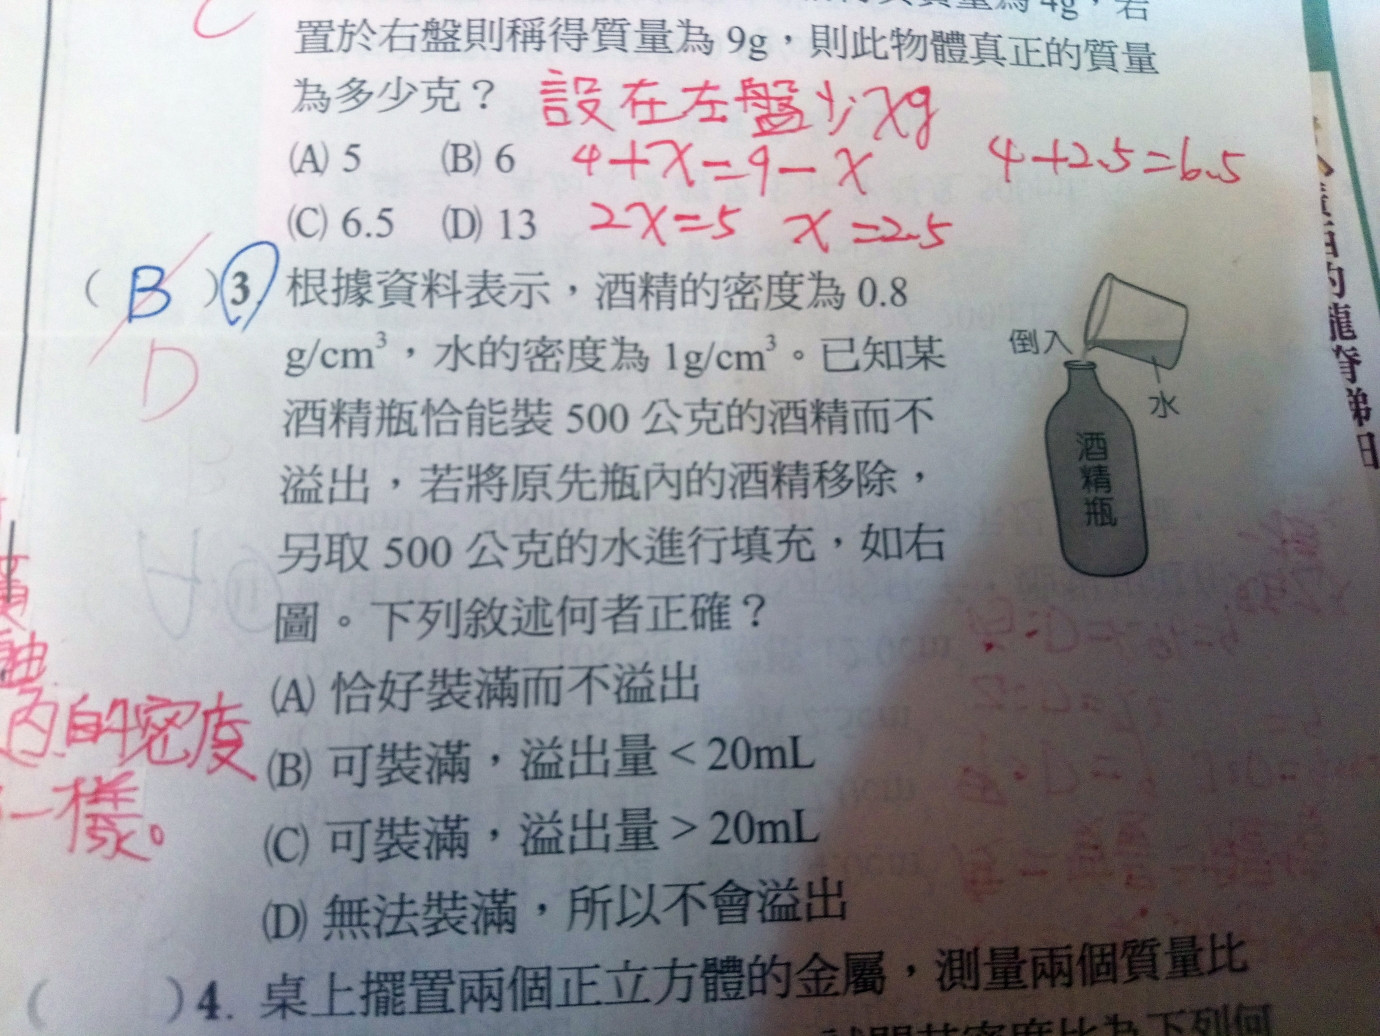 為 4g，若
置於右盤則稱得質量為 9g，則此物體真正的質量
為多少克？ 設在左盤少xg
(A) 5 (B) 6 4+x=9-x 4+2.5=6.5
(C) 6.5 (D) 13 2x=5 x=2.5
( B ) 3. 根據資料表示，酒精的密度為 0.8
D
g/cm³，水的密度為 1g/cm³。已知某
酒精瓶恰能裝 500 公克的酒精而不
溢出，若將原先瓶內的酒精移除，
另取 500 公克的水進行填充，如右
圖。下列敘述何者正確？
倒入
水
酒精瓶
(A) 恰好裝滿而不溢出
(B) 可裝滿，溢出量 < 20mL
(C) 可裝滿，溢出量 > 20mL
(D) 無法裝滿，所以不會溢出
內的密度
一樣。
( ) 4. 桌上擺置兩個正立方體的金屬，測量兩個質量比
的龍脊梯田